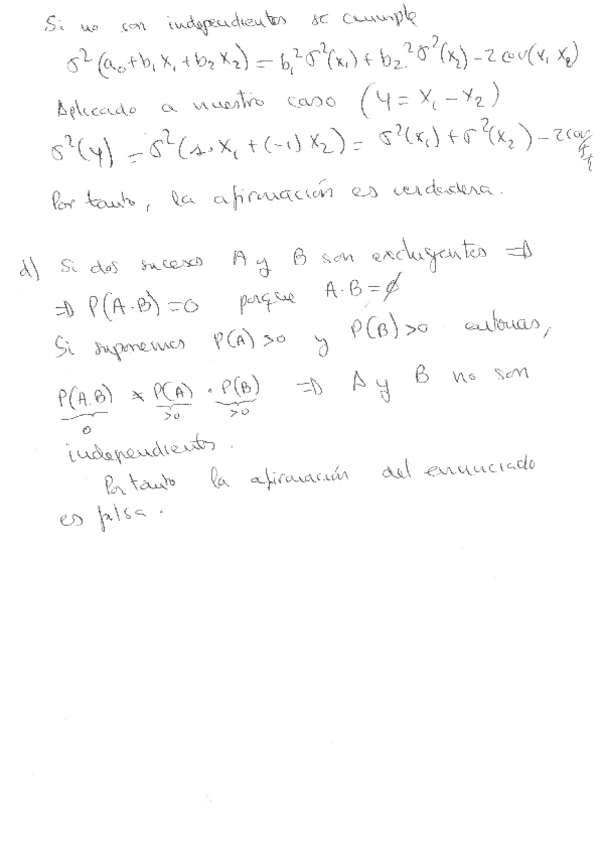 Si no son independientes se cumple
σ²(a₀+b₁x₁+b₂x₂)=b₁²σ²(x₁)+b₂²σ²(x₂)-2cov(x₁x₂)
Aplicado a nuestro caso (y=x₁-x₂)
σ²(y)=σ²(1·x₁+(-1)x₂)=σ²(x₁)+σ²(x₂)-2cov
Por tanto, la afirmación es verdadera.
d) Si dos sucesos A y B son excluyentes ⇒
⇒ P(A·B)=0 porque A·B=∅
Si suponemos P(A)>0 y P(B)>0 entonces,
P(A·B) ≠ P(A) · P(B) ⇒ A y B no son
0 >0 >0
independientes.
Por tanto la afirmación del enunciado
es falsa.